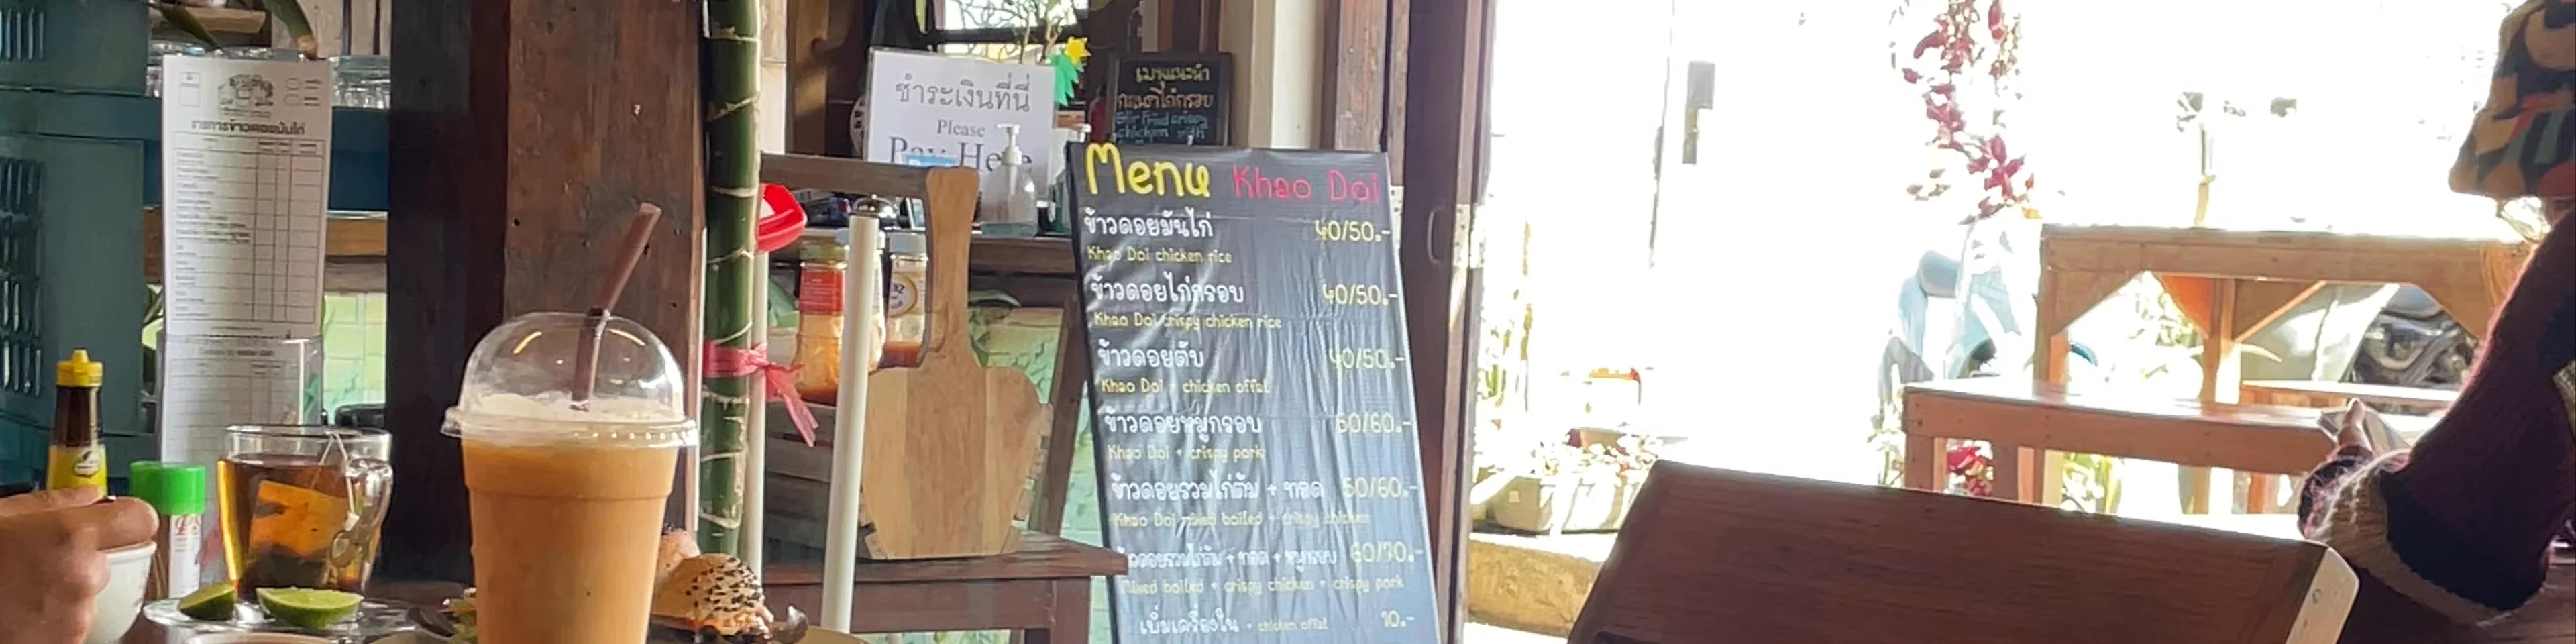 รายการข้าวดอยมันไก่
ชำระเงินที่นี่
Please
Pay Here
เมนูแนะนำ
กะเพราไก่กรอบ
Stir Fried crispy
chicken with
Menu Khao Doi
ข้าวดอยมันไก่ 40/50.-
Khao Doi chicken rice
ข้าวดอยไก่กรอบ 40/50.-
Khao Doi crispy chicken rice
ข้าวดอยตับ 40/50.-
Khao Doi + chicken offal
ข้าวดอยหมูกรอบ 50/60.-
Khao Doi + crispy pork
ข้าวดอยรวมไก่ต้ม + ทอด 50/60.-
Khao Doi mixed boiled + crispy chicken
ข้าวดอยรวมไก่ต้ม + ทอด + หมูกรอบ 60/70.-
Mixed boiled + crispy chicken + crispy pork
เพิ่มเครื่องใน + chicken offal 10.-